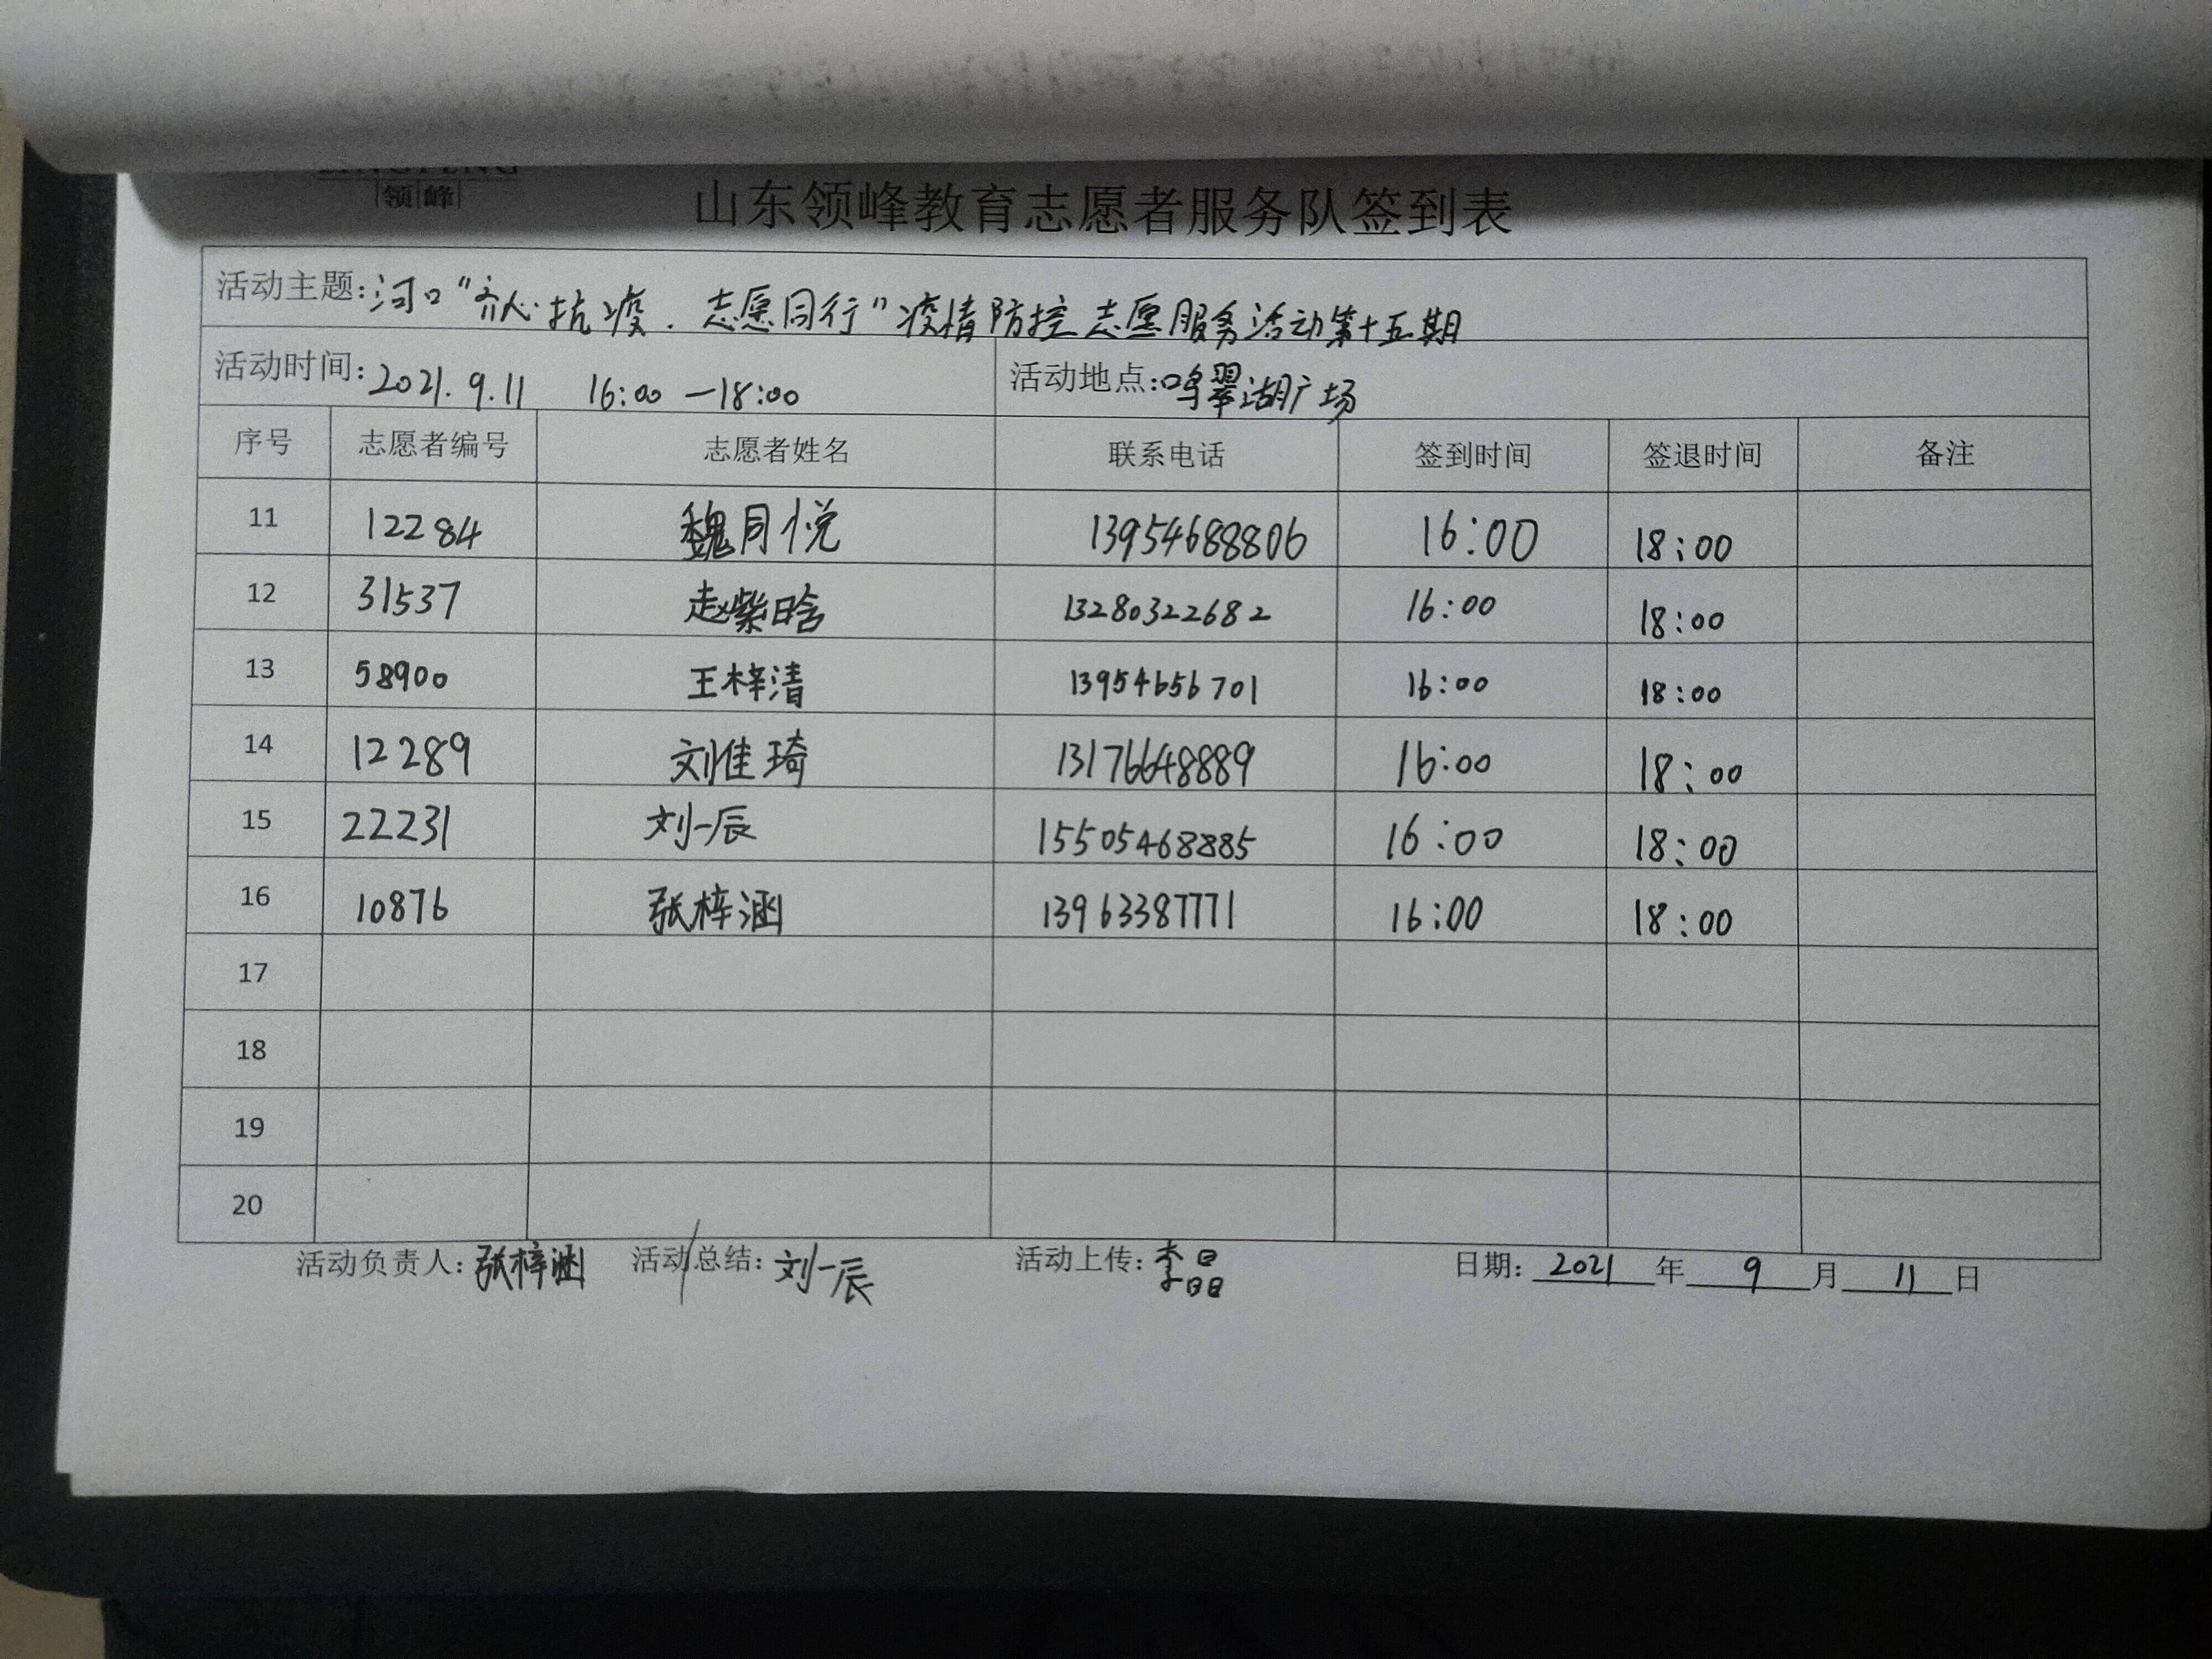 领峰
山东领峰教育志愿者服务队签到表
活动主题:河口"齐心抗疫.志愿同行"疫情防控志愿服务活动第十五期
活动时间:2021.9.11 16:00—18:00 活动地点:鸣翠湖广场
序号 志愿者编号 志愿者姓名 联系电话 签到时间 签退时间 备注
11 12284 魏同悦 13954688806 16:00 18:00
12 31537 赵紫晗 13280322682 16:00 18:00
13 58900 王梓清 13954656701 16:00 18:00
14 12289 刘佳琦 13176648889 16:00 18:00
15 22231 刘一辰 15505468885 16:00 18:00
16 10876 张梓涵 13963387771 16:00 18:00
17
18
19
20
活动负责人:张梓涵 活动总结:刘一辰 活动上传:李晶 日期:2021年9月11日